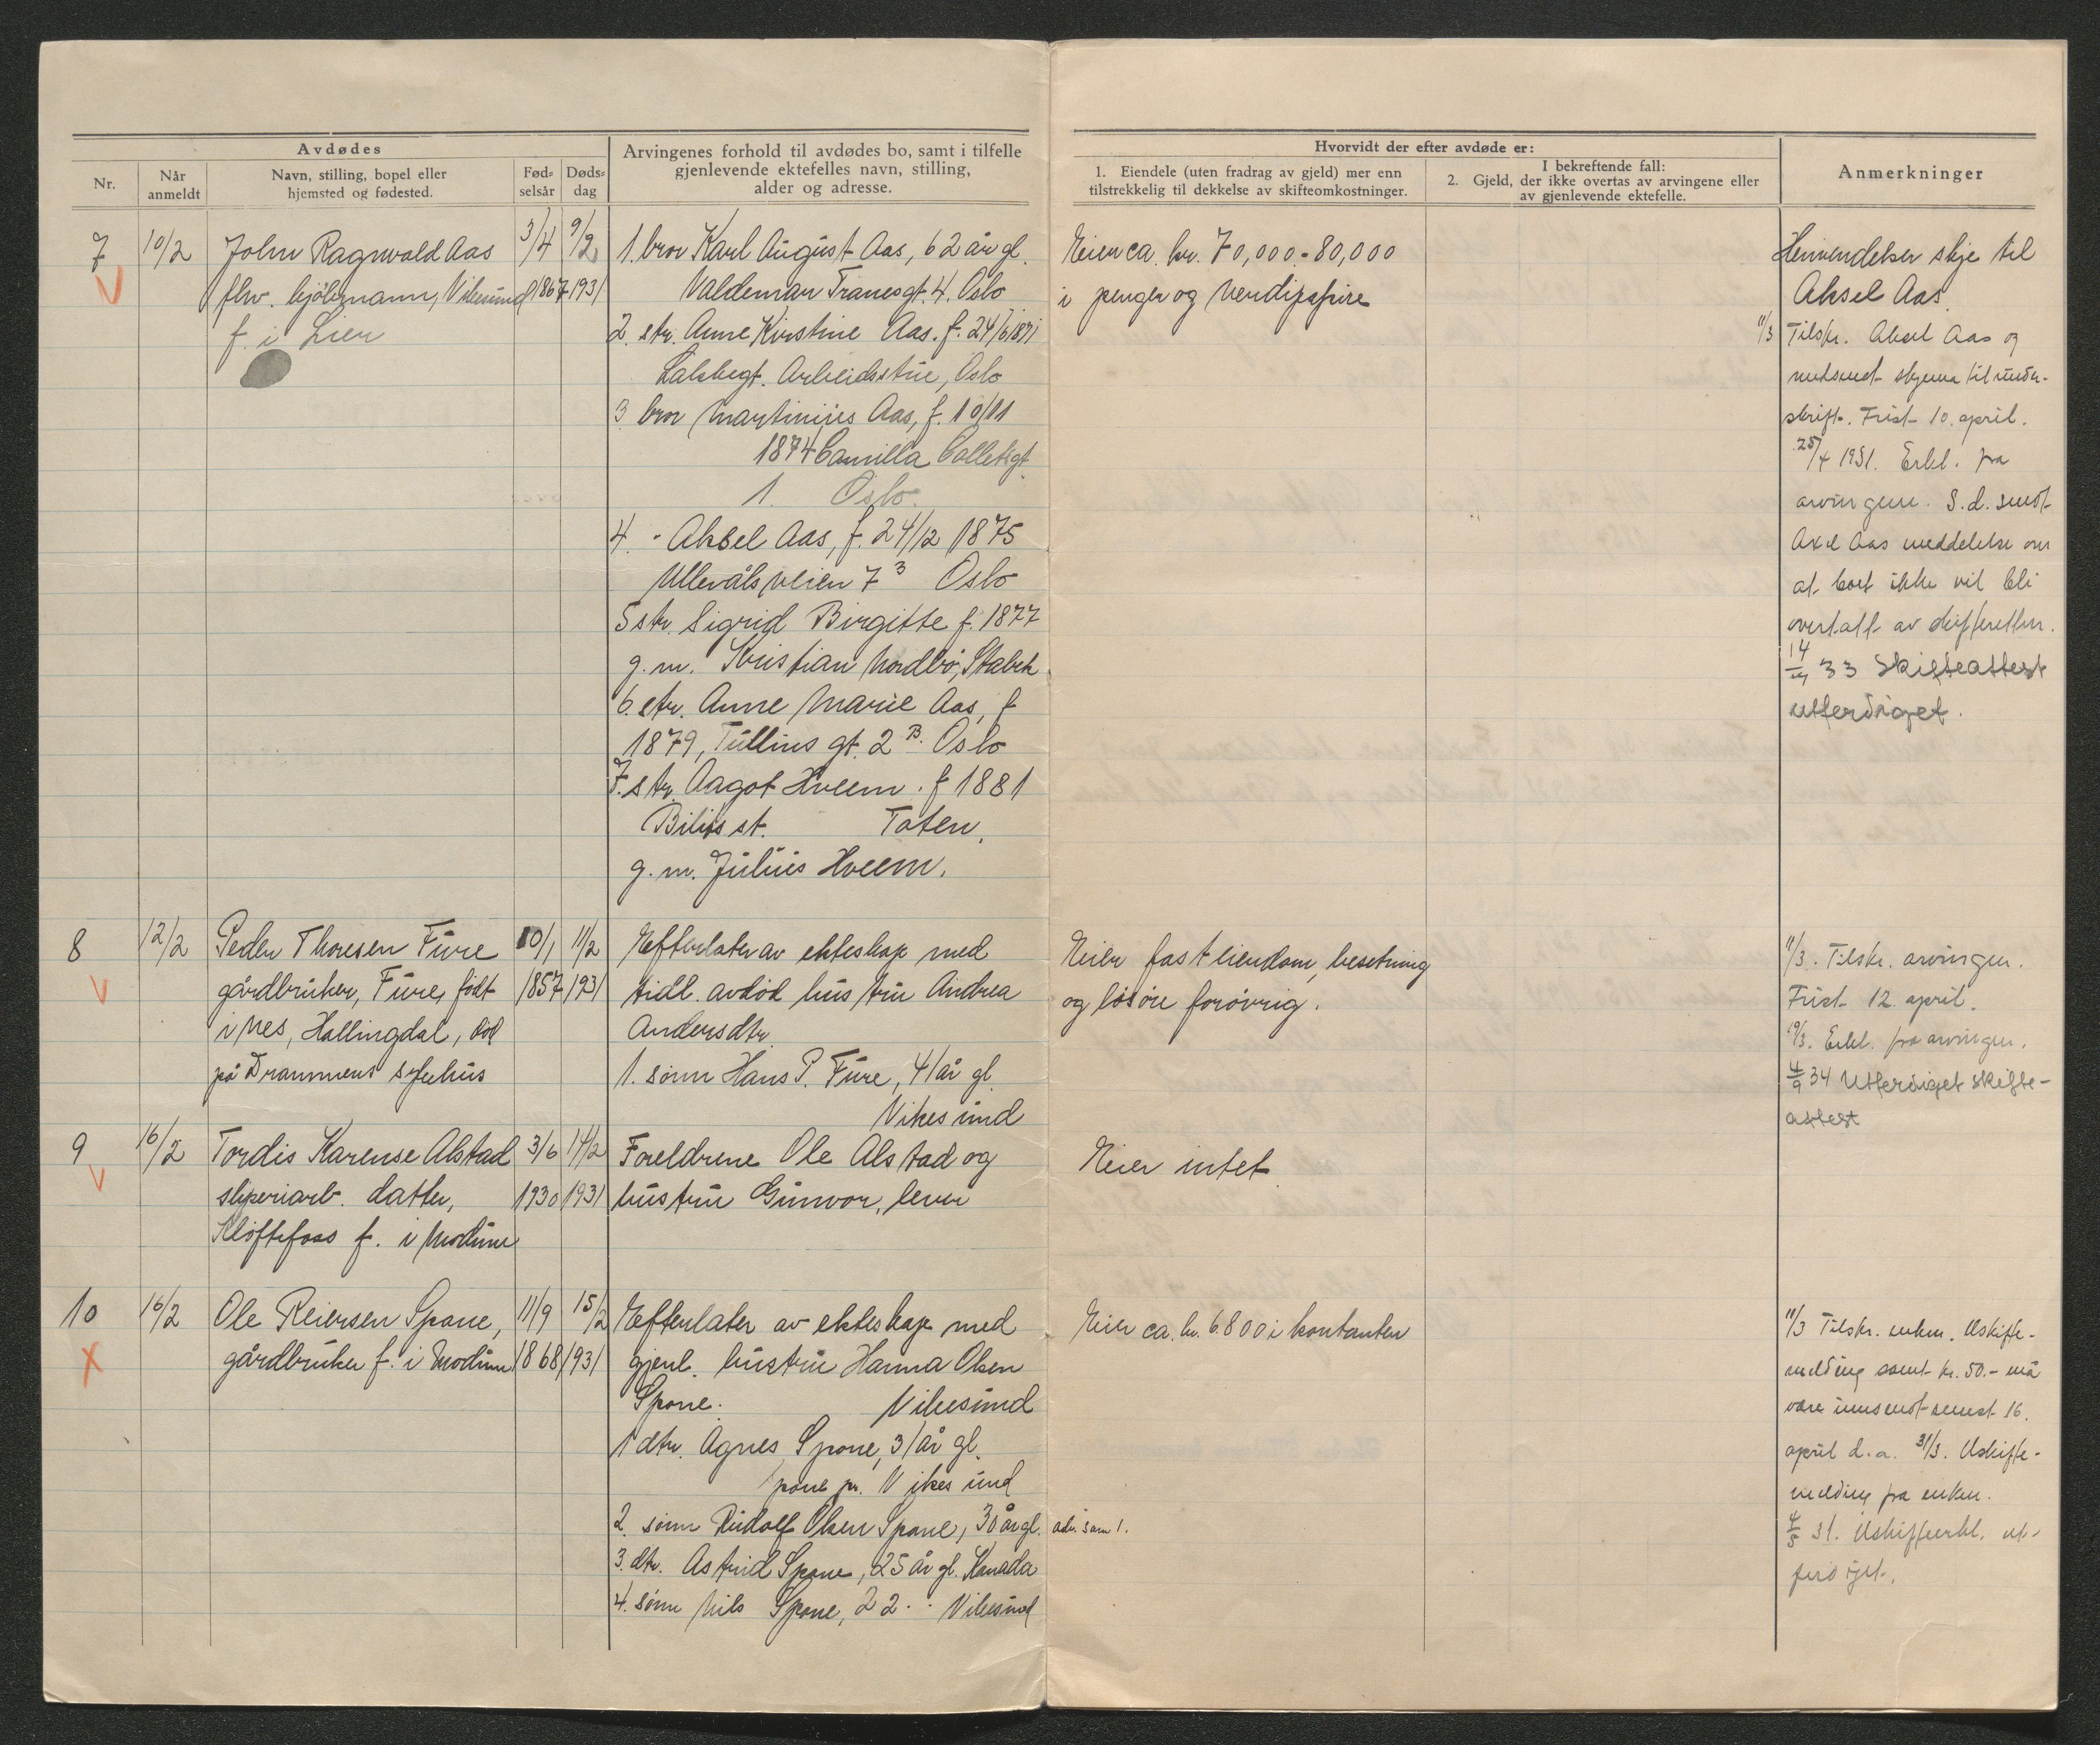 Avdødes
Nr.
Når anmeldt
Navn, stilling, bopel eller hjemsted og fødested.
Fødselsår
Dødsdag
Arvingenes forhold til avdødes bo, samt i tilfelle
gjenlevende ektefelles navn, stilling,
alder og adresse.
Hvorvidt der efter avdøde er:
1. Eiendele (uten fradrag av gjeld) mer enn
tilstrekkelig til dekkelse av skifteomkostninger.
I bekreftende fall:
2. Gjeld, der ikke overtas av arvingene eller
av gjenlevende ektefelle.
Anmerkninger
7
10/2
John Ragnvald Aas
fhv. kjøbmann, Vikesund
f. i Lier
3/4
1867
9/2
1931
1. bror Karl August Aas, 62 år gl.
Valdemar Tranesgt. 4. Oslo
2. str. Anne Kirstine Aas. f. 24/6 1871
Arbeidsstue, Oslo
3 bror Martinius Aas, f. 10/11
1874 Camilla Colletsgt.
1. Oslo.
4. - Aksel Aas, f. 24/12 1875
Ullevålsveien 7³ Oslo
5 str. Sigrid Birgitte f. 1877
g. m. Kristian Nordbö, Stabek
6. str. Anne Marie Aas, f
1879, Tullins gt. 2 B. Oslo
7. str. Aagot Hveem. f 1881
Bilitt st. Toten.
g. m. Julius Hveem.
Eier ca. kr. 70,000 - 80,000
i penger og verdipapire
Henvendelser skje til
Aksel Aas.
11/3 Tilskr. Aksel Aas og
nedsendt skjema til under-
skrift. Frist 10. april.
25/4 1931. Erkl. fra
arvingene. S. d. sendt
Axel Aas meddelelse om
at boet ikke vil bli
overtatt av skifteretten.
33 Skifteattest
utferdiget.
8
12/2
Peder Thoresen Fure
gårdbruker, Fure, født
i Nes, Hallingdal, död
på Drammens sykehus
10/1
1857
11/2
1931
Efterlater av ekteskap med
tidl. avdöd hustru Andrea
Andersdtr.
1. sönn Hans P. Fure, 41 år gl.
Vikesund
Eier fast eiendom, besetning
og lösöre forövrig.
11/3. Tilskr. arvingen.
Frist 12. april.
19/3. Erkl. fra arvingen.
4/9 34 Utferdiget skifte-
attest
9
16/2
Tordis Karense Alstad
sliperiarb. datter,
Kløftefoss f. i Modum
3/6
1930
14/2
1931
Foreldrene Ole Alstad og
hustru Gunvor, lever
Eier intet.
10
16/2
Ole Reiersen Spone,
gårdbruker f. i Modum
11/9
1868
15/2
1931
Efterlater av ekteskap med
gjenl. hustru Hanna Olsen
Spone. Vikesund
1 dtr. Agnes Spone, 31 år gl.
Spone pr. Vikesund
2. sönn Rudolf Olsen Spone, 30 år gl. adr. som 1.
3. dtr. Astrid Spone, 25 år gl. Kanada
4. sönn Nils Spone, 22 - - Vikesund
Eier ca. kr. 6.800 i kontanter
11/3 Tilskr. enken. Uskifte-
melding samt kr. 50.- må
være innsendt senest 16.
april d. a. 31/3. Uskifte-
melding fra enken.
4/5 31. Uskifteerkl. ut-
ferdiget.